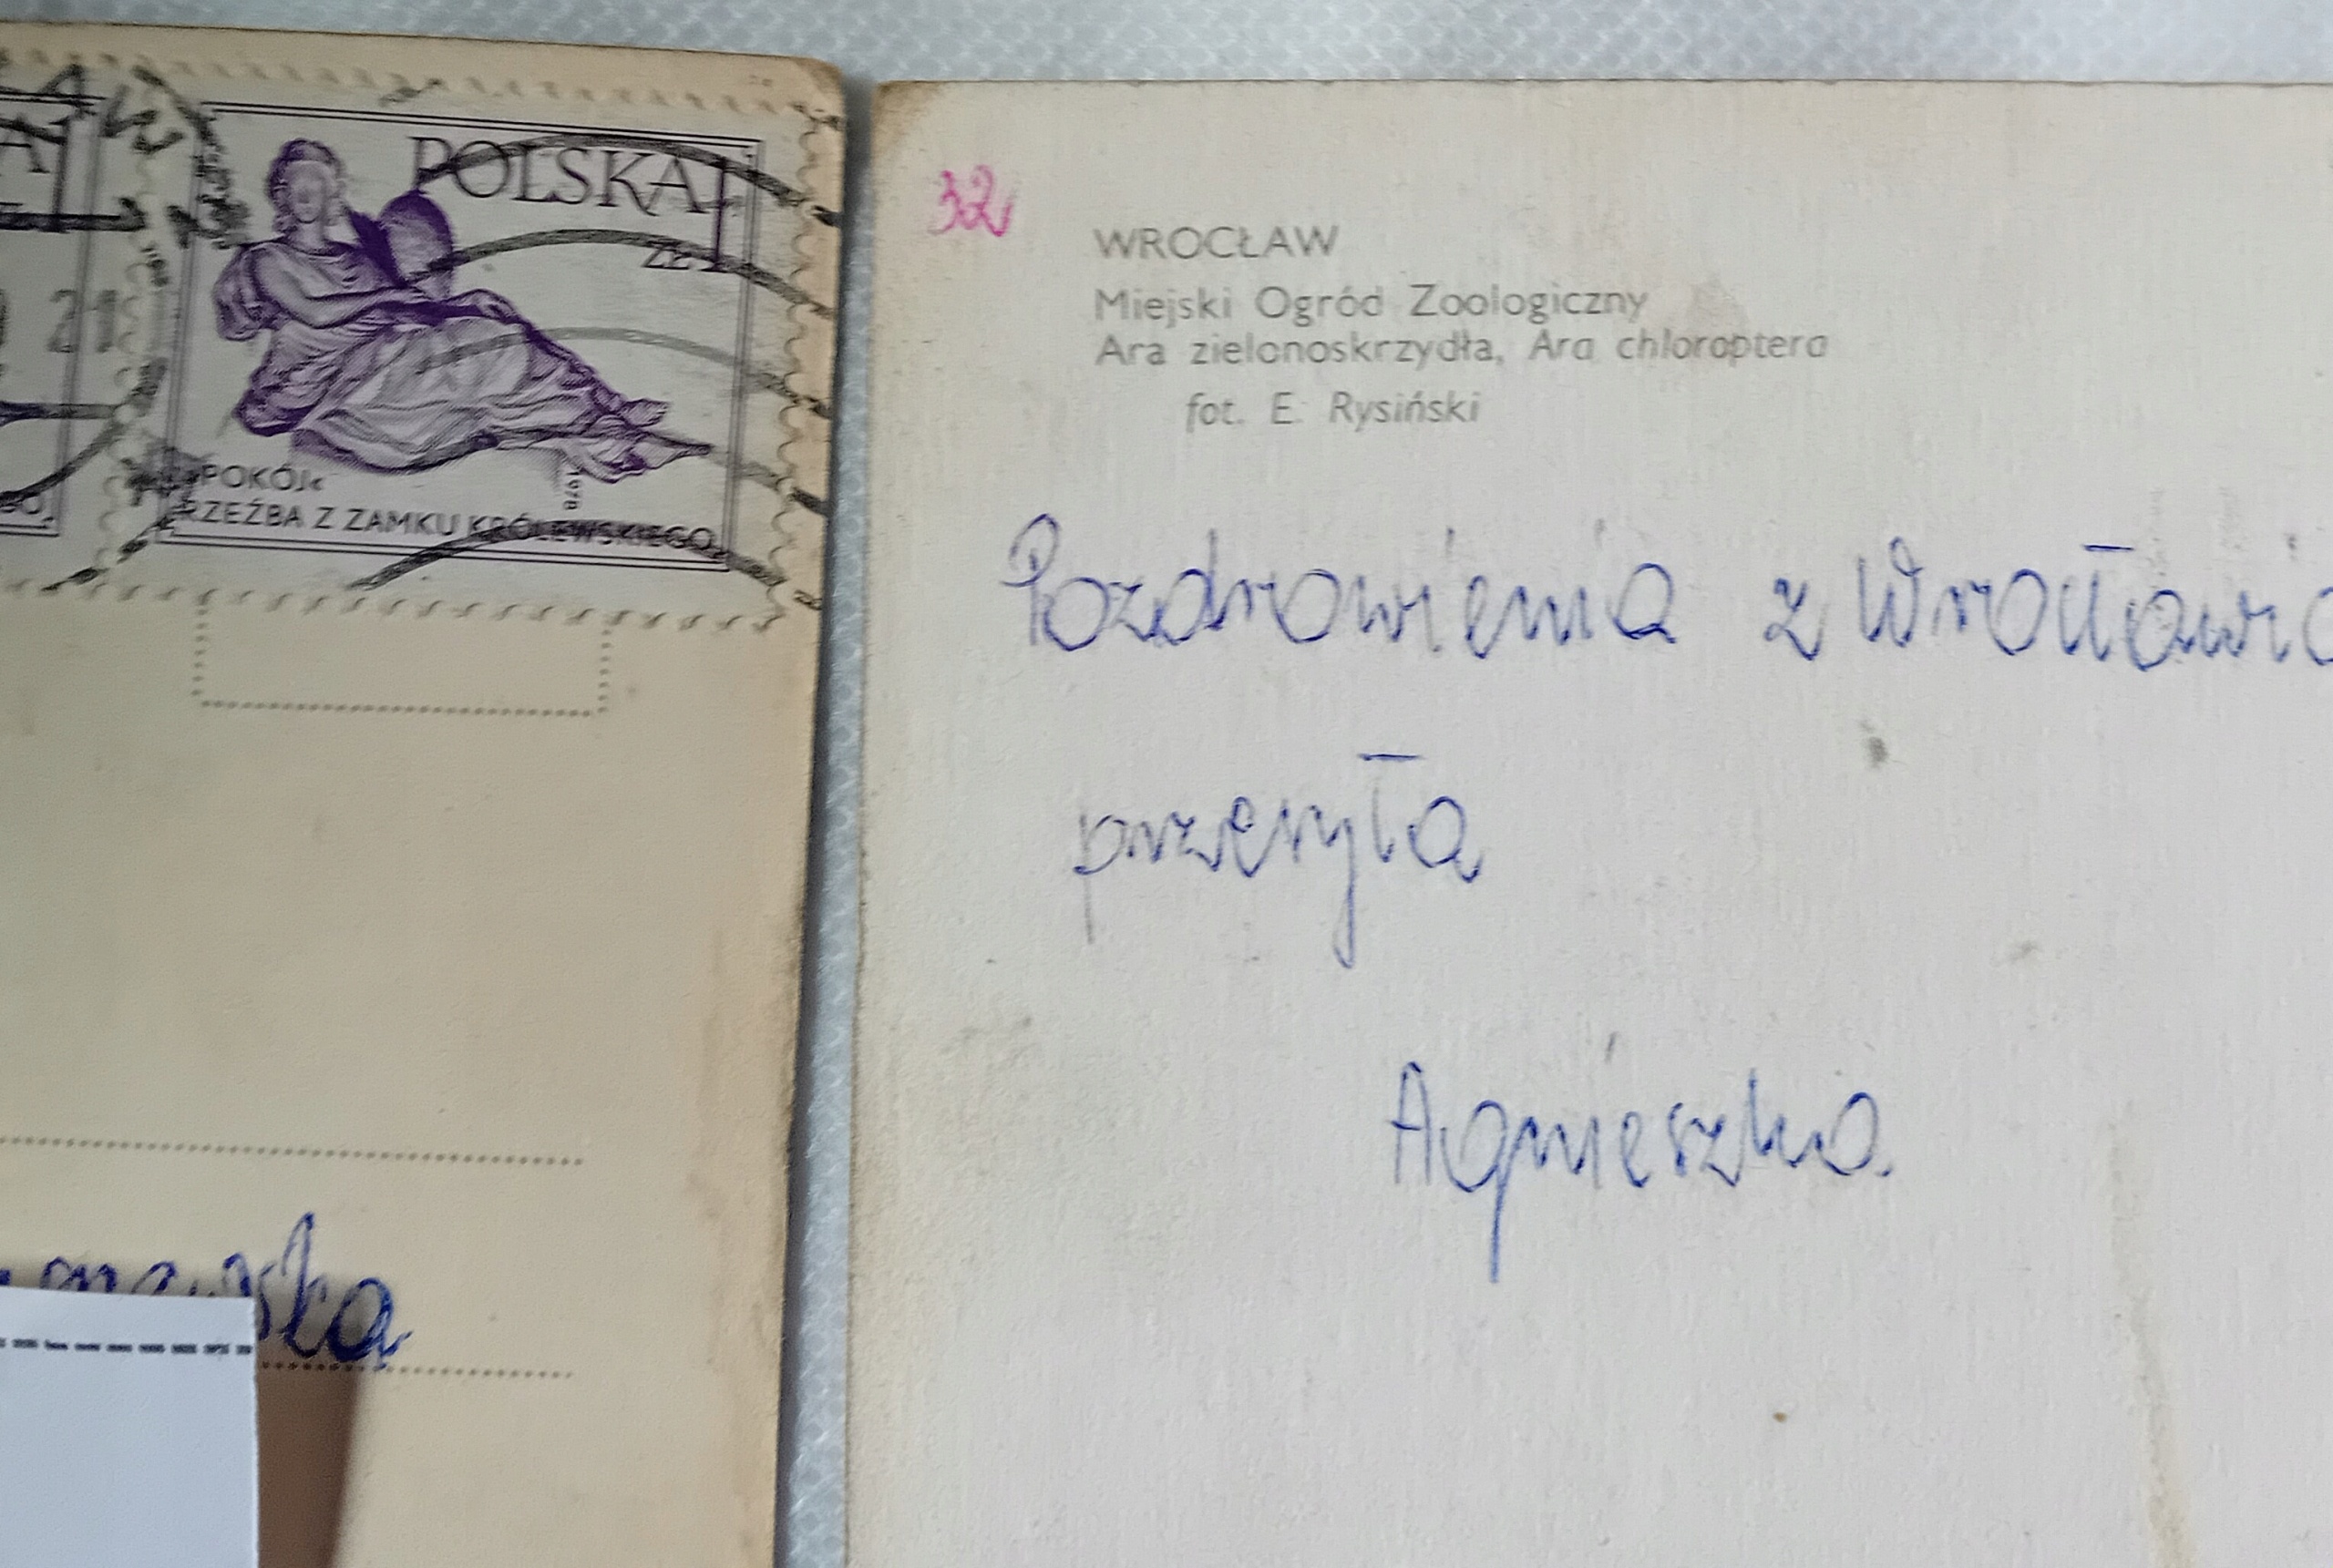 POLSKA 1
ZŁ
»POKÓJ«
1978
RZEŹBA Z ZAMKU KRÓLEWSKIEGO
21
32
WROCŁAW
Miejski Ogród Zoologiczny
Ara zielonoskrzydła, Ara chloroptera
fot. E. Rysiński
Pozdrowienia z
przesyła
Agnieszka.